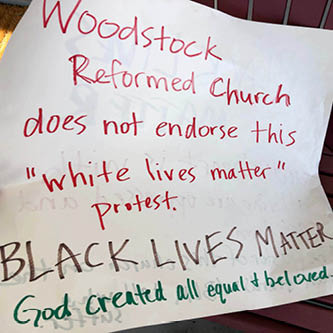 Woodstock
Reformed Church
does not endorse this
"white lives matter"
protest.
BLACK LIVES MATTER
God created all equal & beloved.